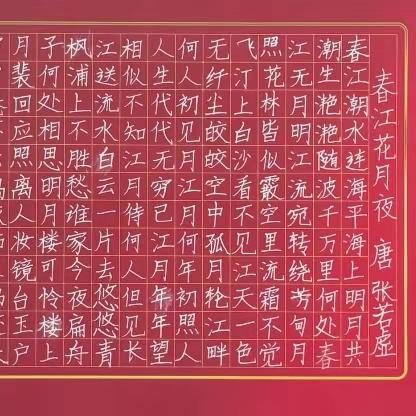 春江花月夜 唐 张若虚
春江潮水连海平海上明月共
潮生滟滟随波千万里何处春
江无月明江流宛转绕芳甸月
照花林皆似霰空里流霜不觉
飞汀上白沙看不见江天一色
无纤尘皎皎空中孤月轮江畔
何人初见月江月何年初照人
人生代代无穷已江月年年望
相似不知江月待何人但见长
江送流水白云一片去悠悠青
枫浦上不胜愁谁家今夜扁舟
子何处相思明月楼可怜楼上
月裴回应照离人妆镜台玉户